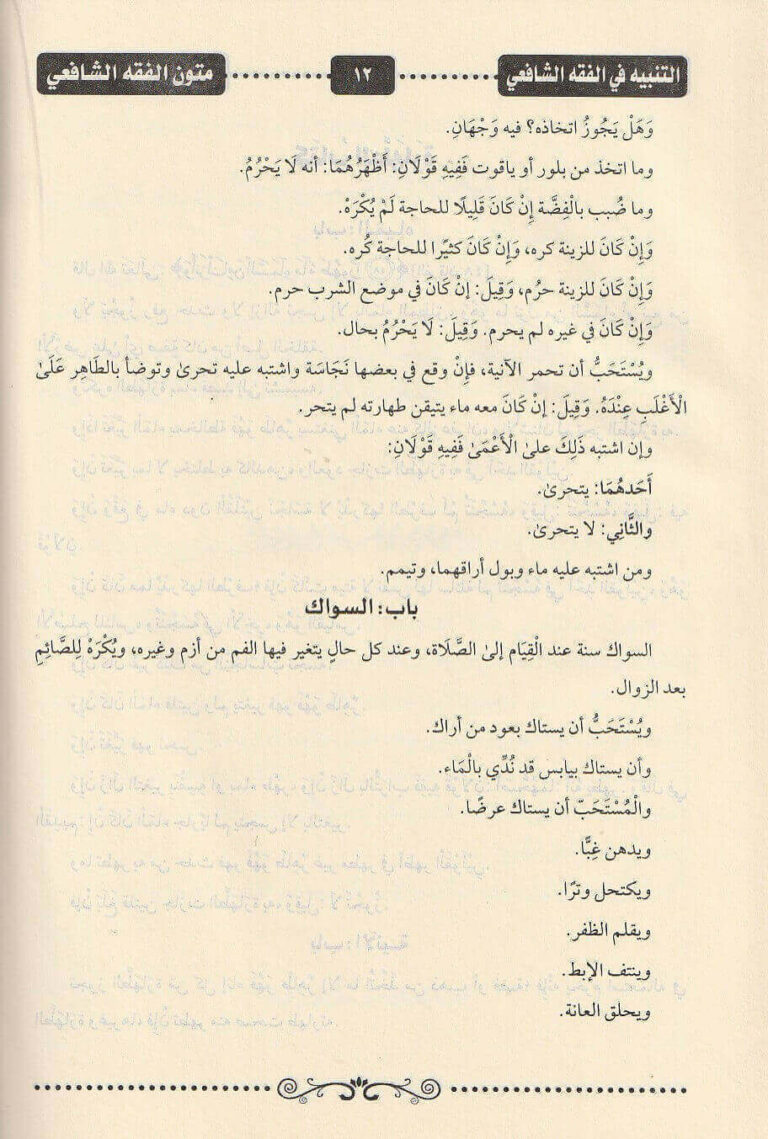 التنبيه في الفقه الشافعي
١٢
متون الفقه الشافعي
وَهَلْ يَجُوزُ اتخاذه؟ فيه وَجْهَانِ.
وما اتخذ من بلور أو ياقوت فَفِيهِ قَوْلَانِ: أَظْهَرُهُمَا: أنه لَا يَحْرُمُ.
وما ضُبب بالْفِضَّة إِنْ كَانَ قَلِيلًا للحاجة لَمْ يُكْرَهْ.
وَإِنْ كَانَ للزينة كره، وَإِنْ كَانَ كثيًرا للحاجة كُره.
وَإِنْ كَانَ للزينة حرُم، وَقِيلَ: إنْ كَانَ في موضع الشرب حرم.
وَإِنْ كَانَ في غيره لم يحرم. وَقِيلَ: لَا يَحْرُمُ بحال.
ويُسْتَحَبُّ أن تحمر الآنية، فإِنْ وقع في بعضها نَجَاسَة واشتبه عليه تحرىٰ وتوضأ بالطَاهِر عَلَىٰ
الْأَغْلَبِ عِنْدَهُ. وَقِيلَ: إنْ كَانَ معه ماء يتيقن طهارته لم يتحر.
وإن اشتبه ذَلِكَ علىٰ الْأَعْمَىٰ فَفِيهِ قَوْلَانِ:
أَحَدهُمَا: يتحرىٰ.
والثَّانِي: لا يتحرىٰ.
ومن اشتبه عليه ماء وبول أراقهما، وتيمم.
باب: السواك
السواك سنة عند الْقِيَام إلىٰ الصَّلَاة، وعند كل حالٍ يتغير فيها الفم من أزم وغيره، ويُكْرَهُ لِلصَّائِمِ
بعد الزوال.
ويُسْتَحَبُّ أن يستاك بعود من أراك.
وأن يستاك بيابس قد نُدِّي بالْمَاء.
والْمُسْتَحَبّ أن يستاك عرضًا.
ويدهن غِبًّا.
ويكتحل وترًا.
ويقلم الظفر.
وينتف الإبط.
ويحلق العانة.